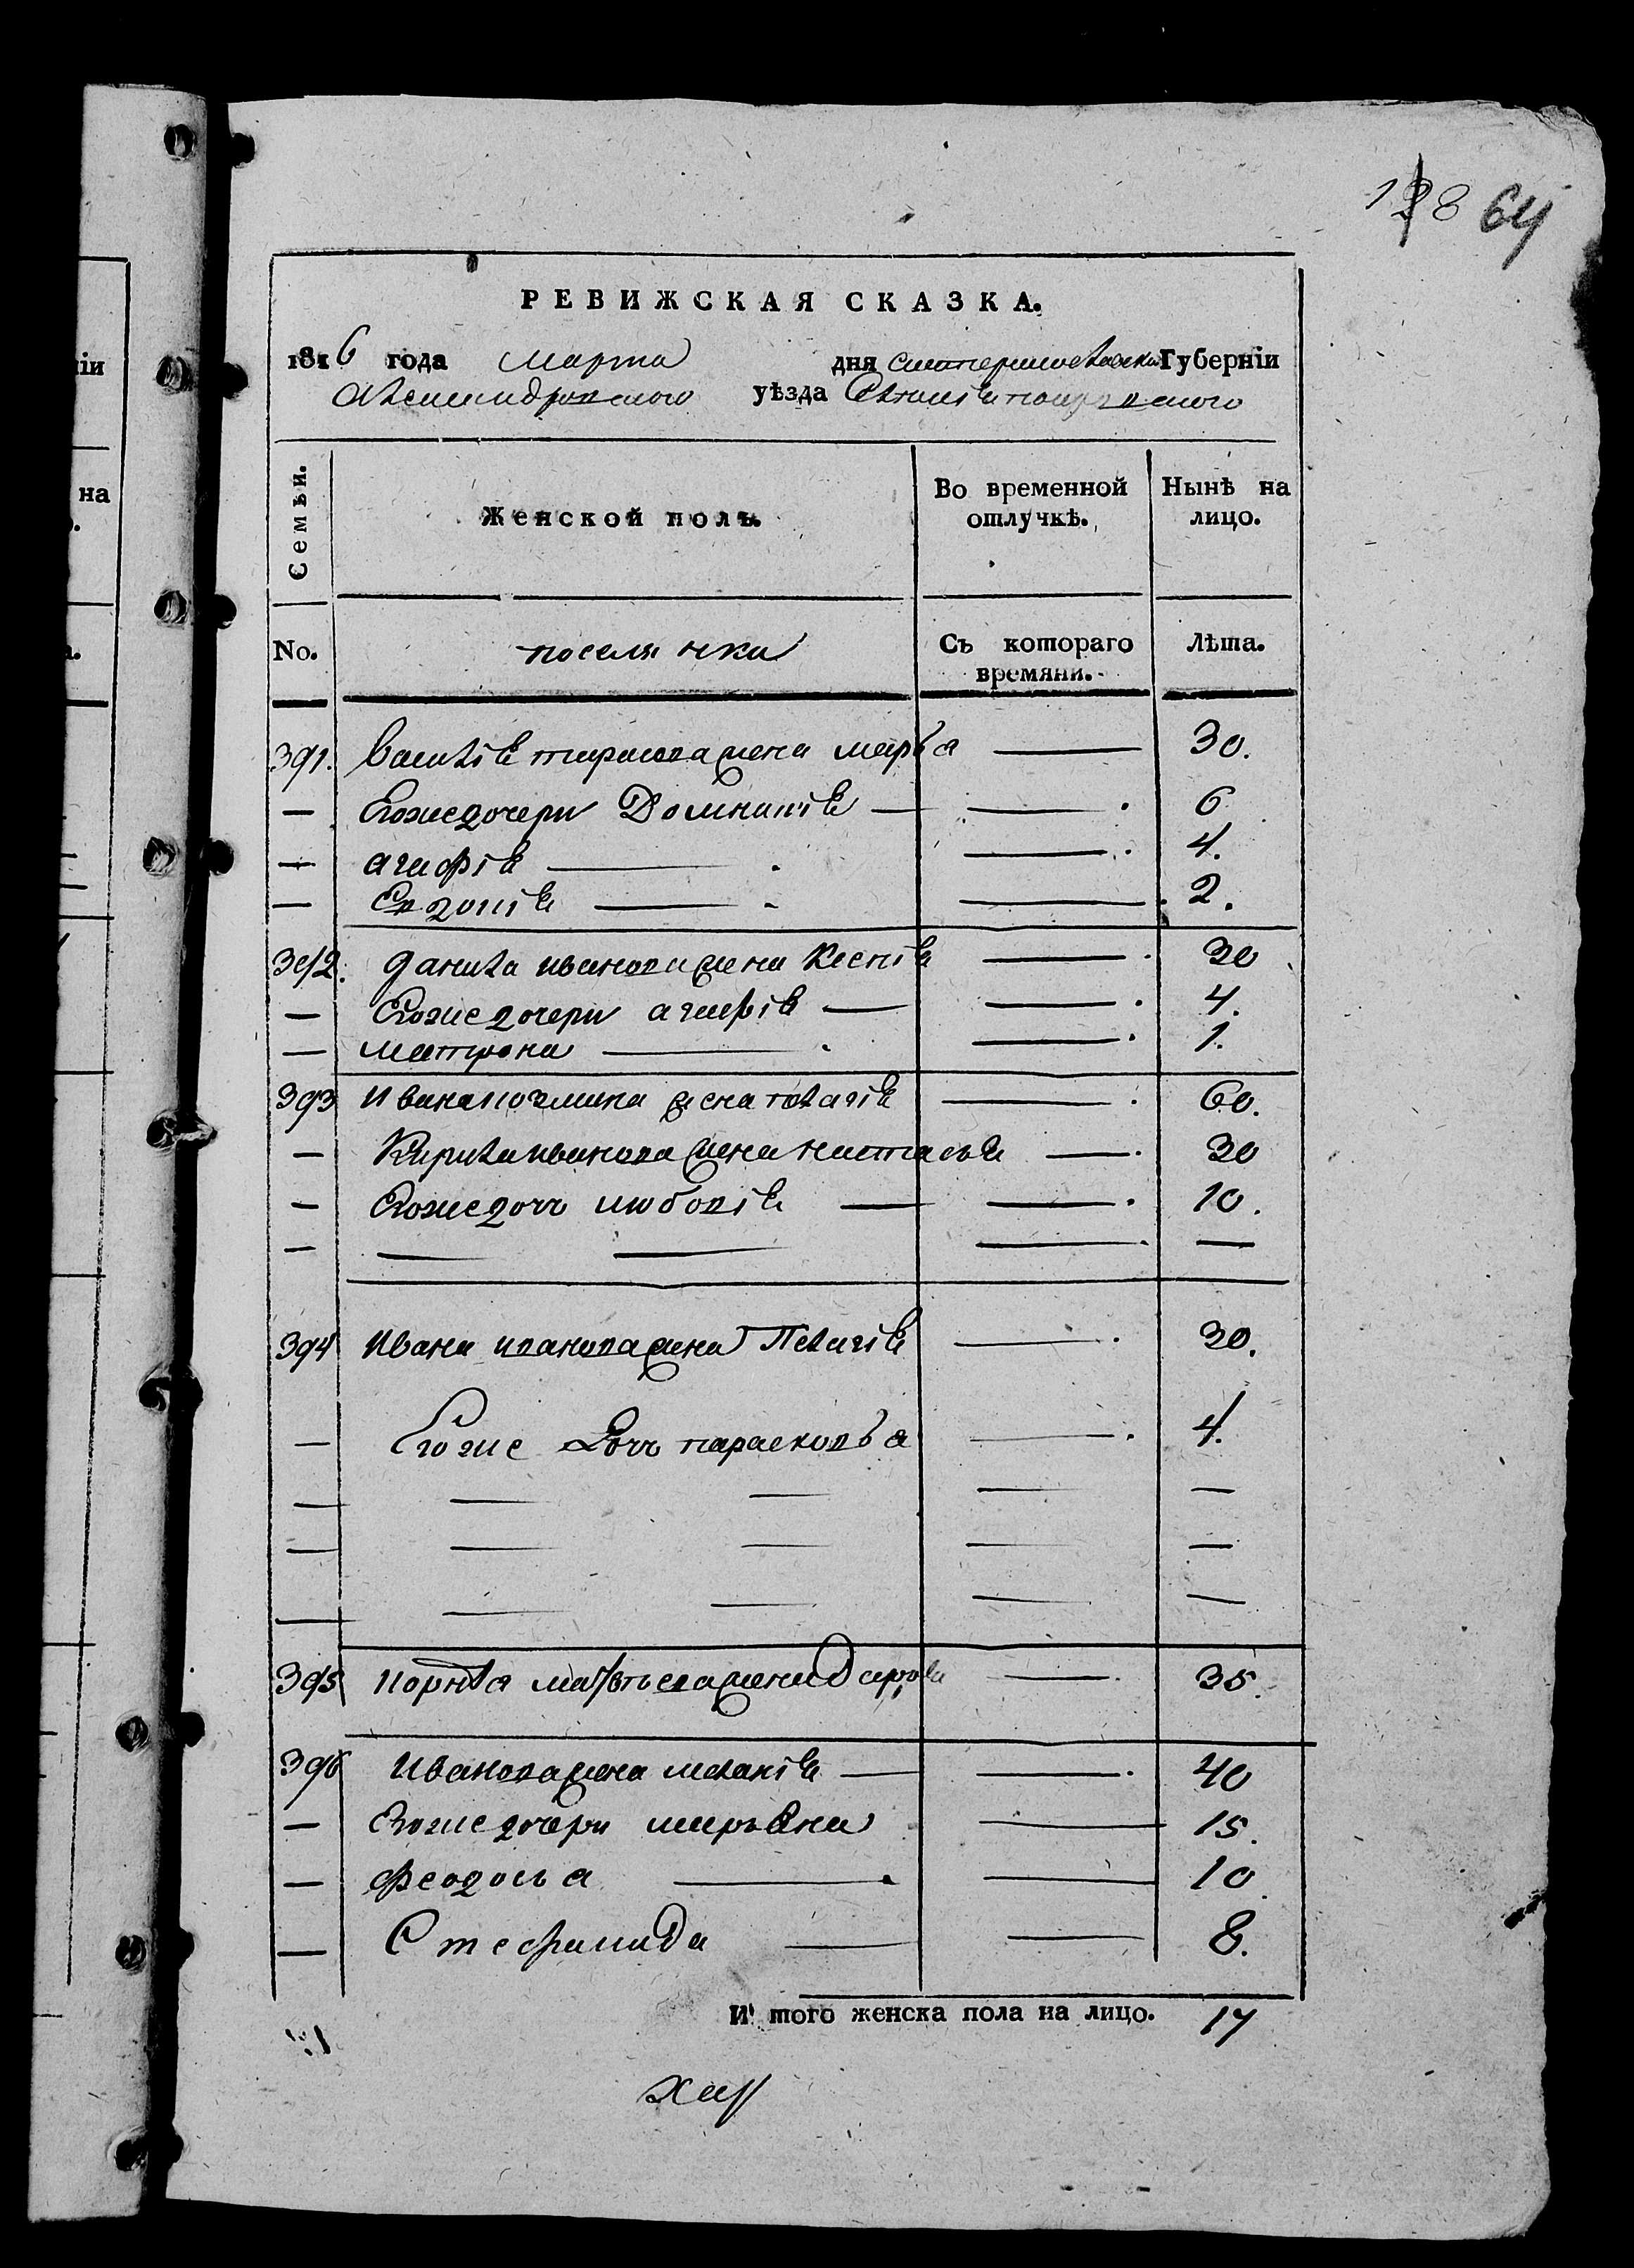 128 64
РЕВИЖСКАЯ СКАЗКА.
1816 года марта дня екатеринославской Губерніи
александровского уѣзда
Семьи. Женской полъ. Во временной отлучкѣ. Нынѣ на лицо.
No. поселянки Съ котораго времяни. Лѣта.
391. василія жена марѳа — 30.
— Егоже дочери Домникія — — 6
— агафія — — 4.
— Евдокія — — 2.
392. данила иванова жена Ксенія — 30
— Егоже дочери агафія — — 4.
— матрона — — 1.
393 Ивана жена пелагія — 60.
— Кирила иванова жена настасья — 30
— Егоже дочь любовія — — 10.
— — — — —
394 Ивана иванова жена Пелагія — 30.
— Егоже дочь парасковья — 4.
— — — — —
— — — — —
— — — — —
395 корнѣя матвѣева жена Дарья — 35.
396 Иванова жена меланія — — 40
— Егоже дочери марьяна — 15.
— феодосья — — 10
— Стефанида — — 8.
И того женска пола на лицо. 17
іи
на